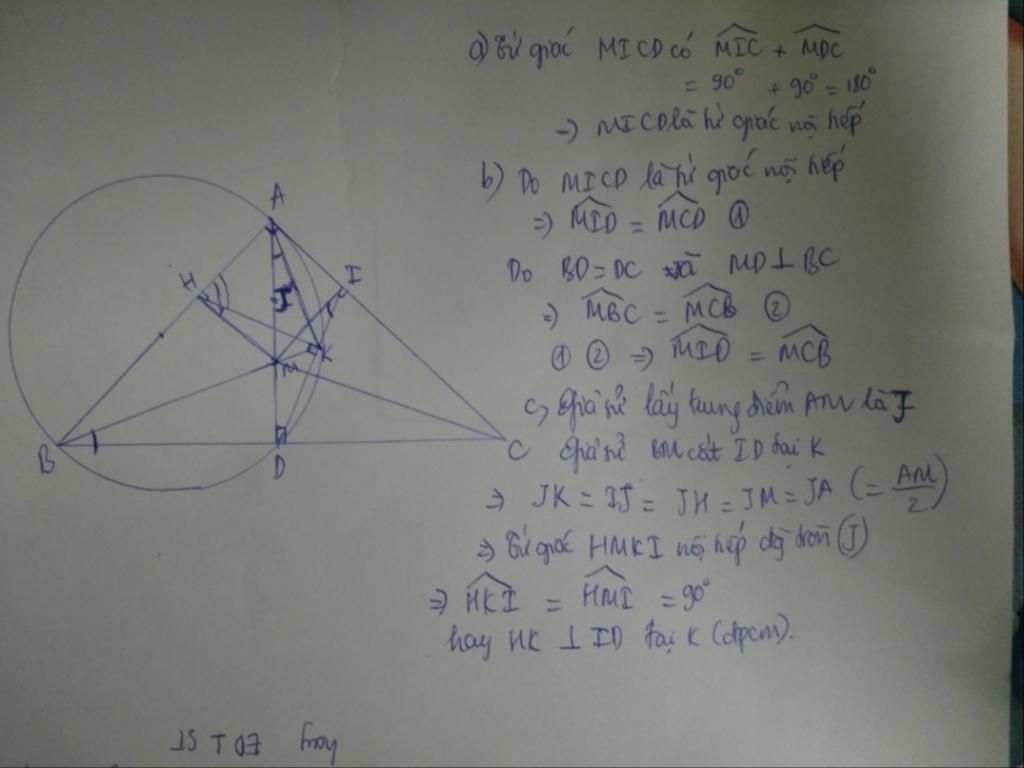 a) Tứ giác MICD có MIC + MDC
= 90° + 90° = 180°
=) MICD là tứ giác nội tiếp
b) Do MICD là tứ giác nội tiếp
=) MID = MCD ①
Do BD = DC và MD ⊥ BC
=) MBC = MCB ②
① ② =) MID = MCB
c, Giả sử lấy trung điểm AM là J
Giả sử BM cắt ID tại K
=) JK = IJ = JH = JM = JA (= AM/2)
=) Tứ giác HMKI nội tiếp đg tròn (J)
=) HKI = HMI = 90°
hay HK ⊥ ID tại K (đpcm).
A
H
I
J
K
M
B
D
C
hay ED ⊥ ST